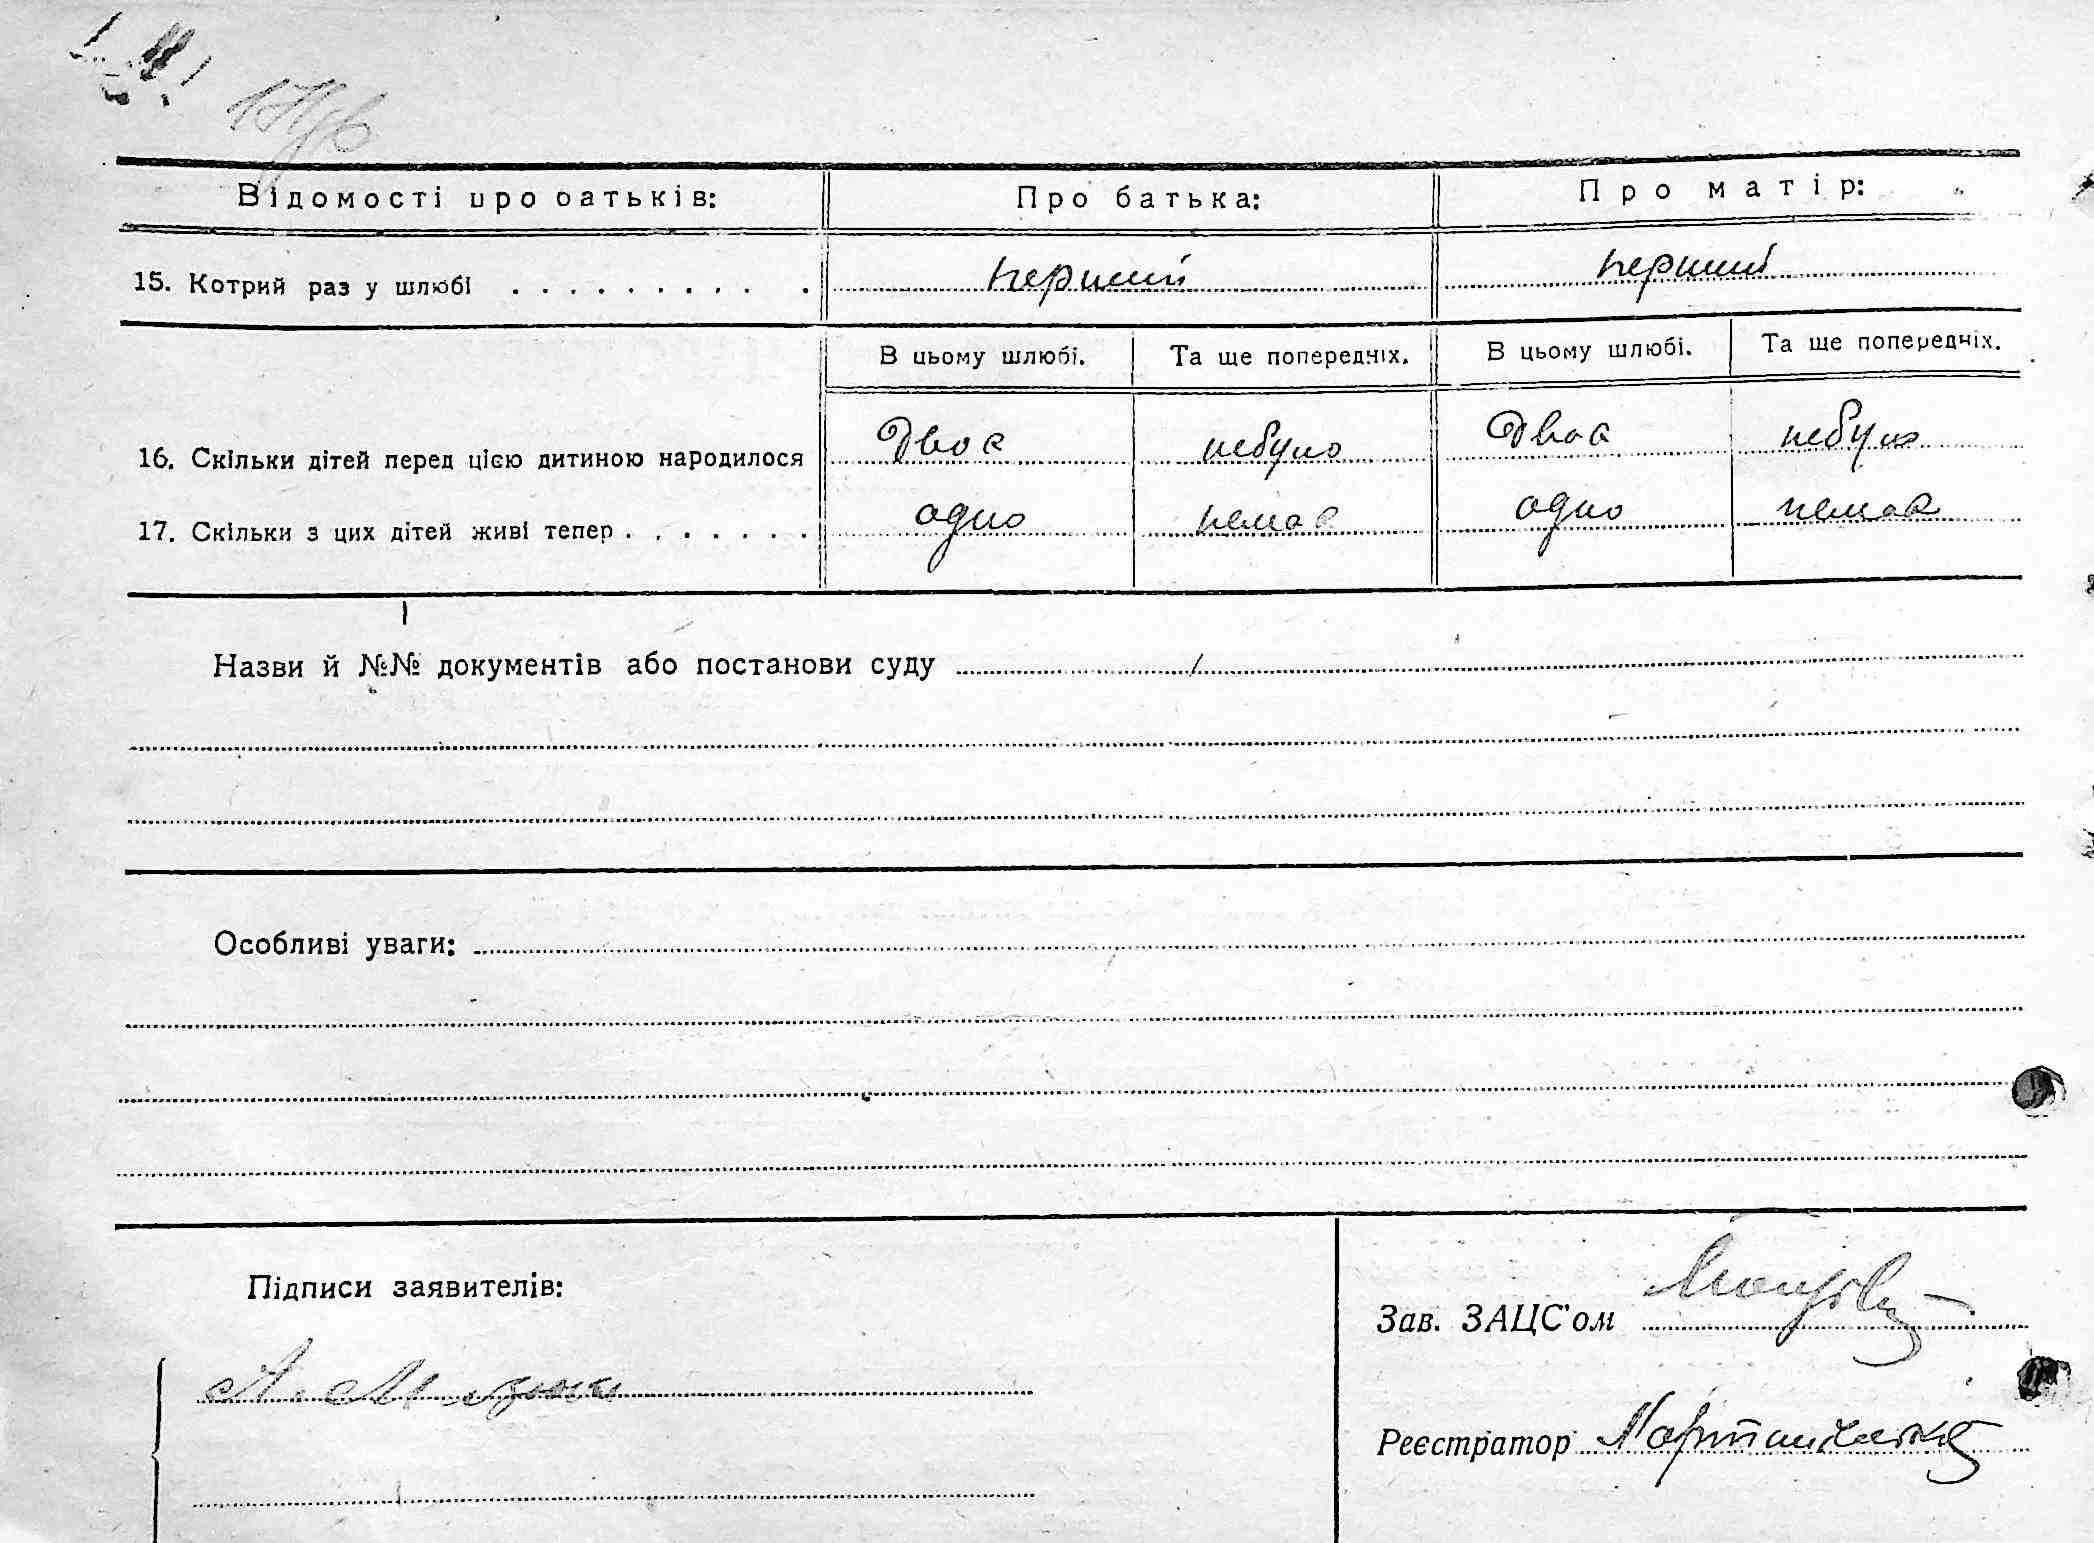 Відомості про батьків: Про батька: Про матір:
15. Котрий раз у шлюбі . . . . . . . . . . перший перший
В цьому шлюбі. Та ще попередніх. В цьому шлюбі. Та ще попередніх.
16. Скільки дітей перед цією дитиною народилося Двоє небуло Двоє небуло
17. Скільки з цих дітей живі тепер . . . . . . . одно немає одно немає
Назви й №№ документів або постанови суду
Особливі уваги:
Підписи заявителів:
Зав. ЗАЦС'ом
Реєстратор